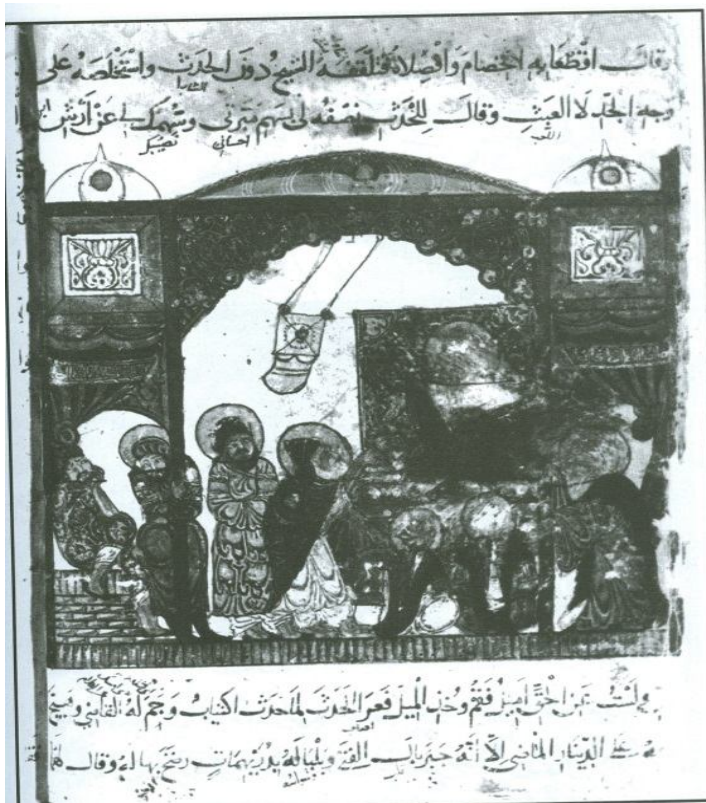 وقال اقطعا به الخصام وافصلاه فتلقفه الشيخ دون الحدث واستخلصه على
وجه الجد لا العبث وقال للحدث نصفه لي بسهم مبرتي وسهمك لي عن أرش
اللعب احساني نصيبك
ولست عن الحق أميل فقم وخذ الميل فعرا الحدث لما حدث اكتياب وجم له القاضي وهيج
على الدينار الماضي إلا أنه جبر بال الفتى وبلباله بدريهمات رضخ بها له وقال لهما